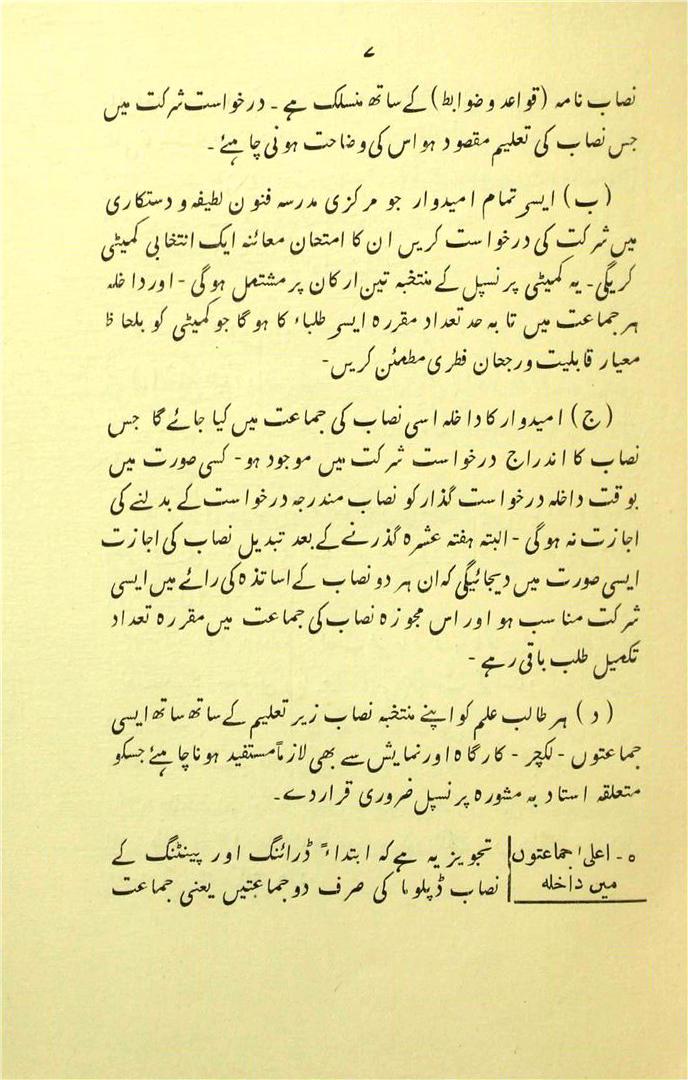 ۷
نصاب نامہ (قواعد و ضوابط) کے ساتھ منسلک ہے ۔ درخواست شرکت میں
جس نصاب کی تعلیم مقصود ہو اس کی وضاحت ہونی چاہیئے ۔
(ب) ایسے تمام امیدوار جو مرکزی مدرسہ فنون لطیفہ و دستکاری
میں شرکت کی درخواست کریں ان کا امتحان معائنہ ایک انتخابی کمیٹی
کریگی ۔ یہ کمیٹی پرنسپل کے منتخبہ تین ارکان پر مشتمل ہوگی - اور داخلہ
ہر جماعت میں تا بہ حد تعداد مقررہ ایسے طلباء کا ہوگا جو کمیٹی کو بلحاظ
معیار قابلیت و رجحان فطری مطمئن کریں -
(ج) امیدوار کا داخلہ اسی نصاب کی جماعت میں کیا جائے گا جس
نصاب کا اندراج درخواست شرکت میں موجود ہو - کسی صورت میں
بوقت داخلہ درخواست گذار کو نصاب مندرجہ درخواست کے بدلنے کی
اجازت نہ ہوگی - البتہ ہفتہ عشرہ گذرنے کے بعد تبدیل نصاب کی اجازت
ایسی صورت میں دیجائیگی کہ ان ہر دو نصاب کے اساتذہ کی رائے میں ایسی
شرکت مناسب ہو اور اس مجوزہ نصاب کی جماعت میں مقررہ تعداد
تکمیل طلب باقی رہے -
(د) ہر طالب علم کو اپنے منتخبہ نصاب زیر تعلیم کے ساتھ ساتھ ایسی
جماعتوں - لکچر - کارگاہ اور نمایش سے بھی لازماً مستفید ہونا چاہیئے جسکو
متعلقہ استاد بہ مشورہ پرنسپل ضروری قرار دے ۔
۵ - اعلیٰ جماعتوں میں داخلہ
تجویز یہ ہے کہ ابتداءً ڈرائنگ اور پینٹنگ کے
نصاب ڈپلوما کی صرف دو جماعتیں یعنی جماعت